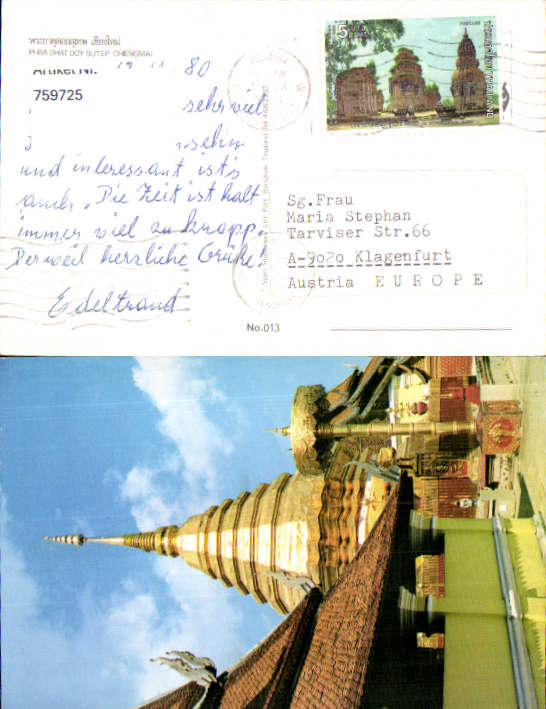 พระธาตุดอยสุเทพ เชียงใหม่
PHRA DHAT DOY SUTEP, CHIENGMAI
Artikel Nr.
759725
19. 11. 80
sehr viel
sehn
und interessant ist's
auch. Die Zeit ist halt
immer viel zu knapp.
Derweil herzliche Grüße
Edeltraud
5
Sg.Frau
Maria Stephan
Tarviser Str.66
A-9020 Klagenfurt
Austria EUROPE
No.013